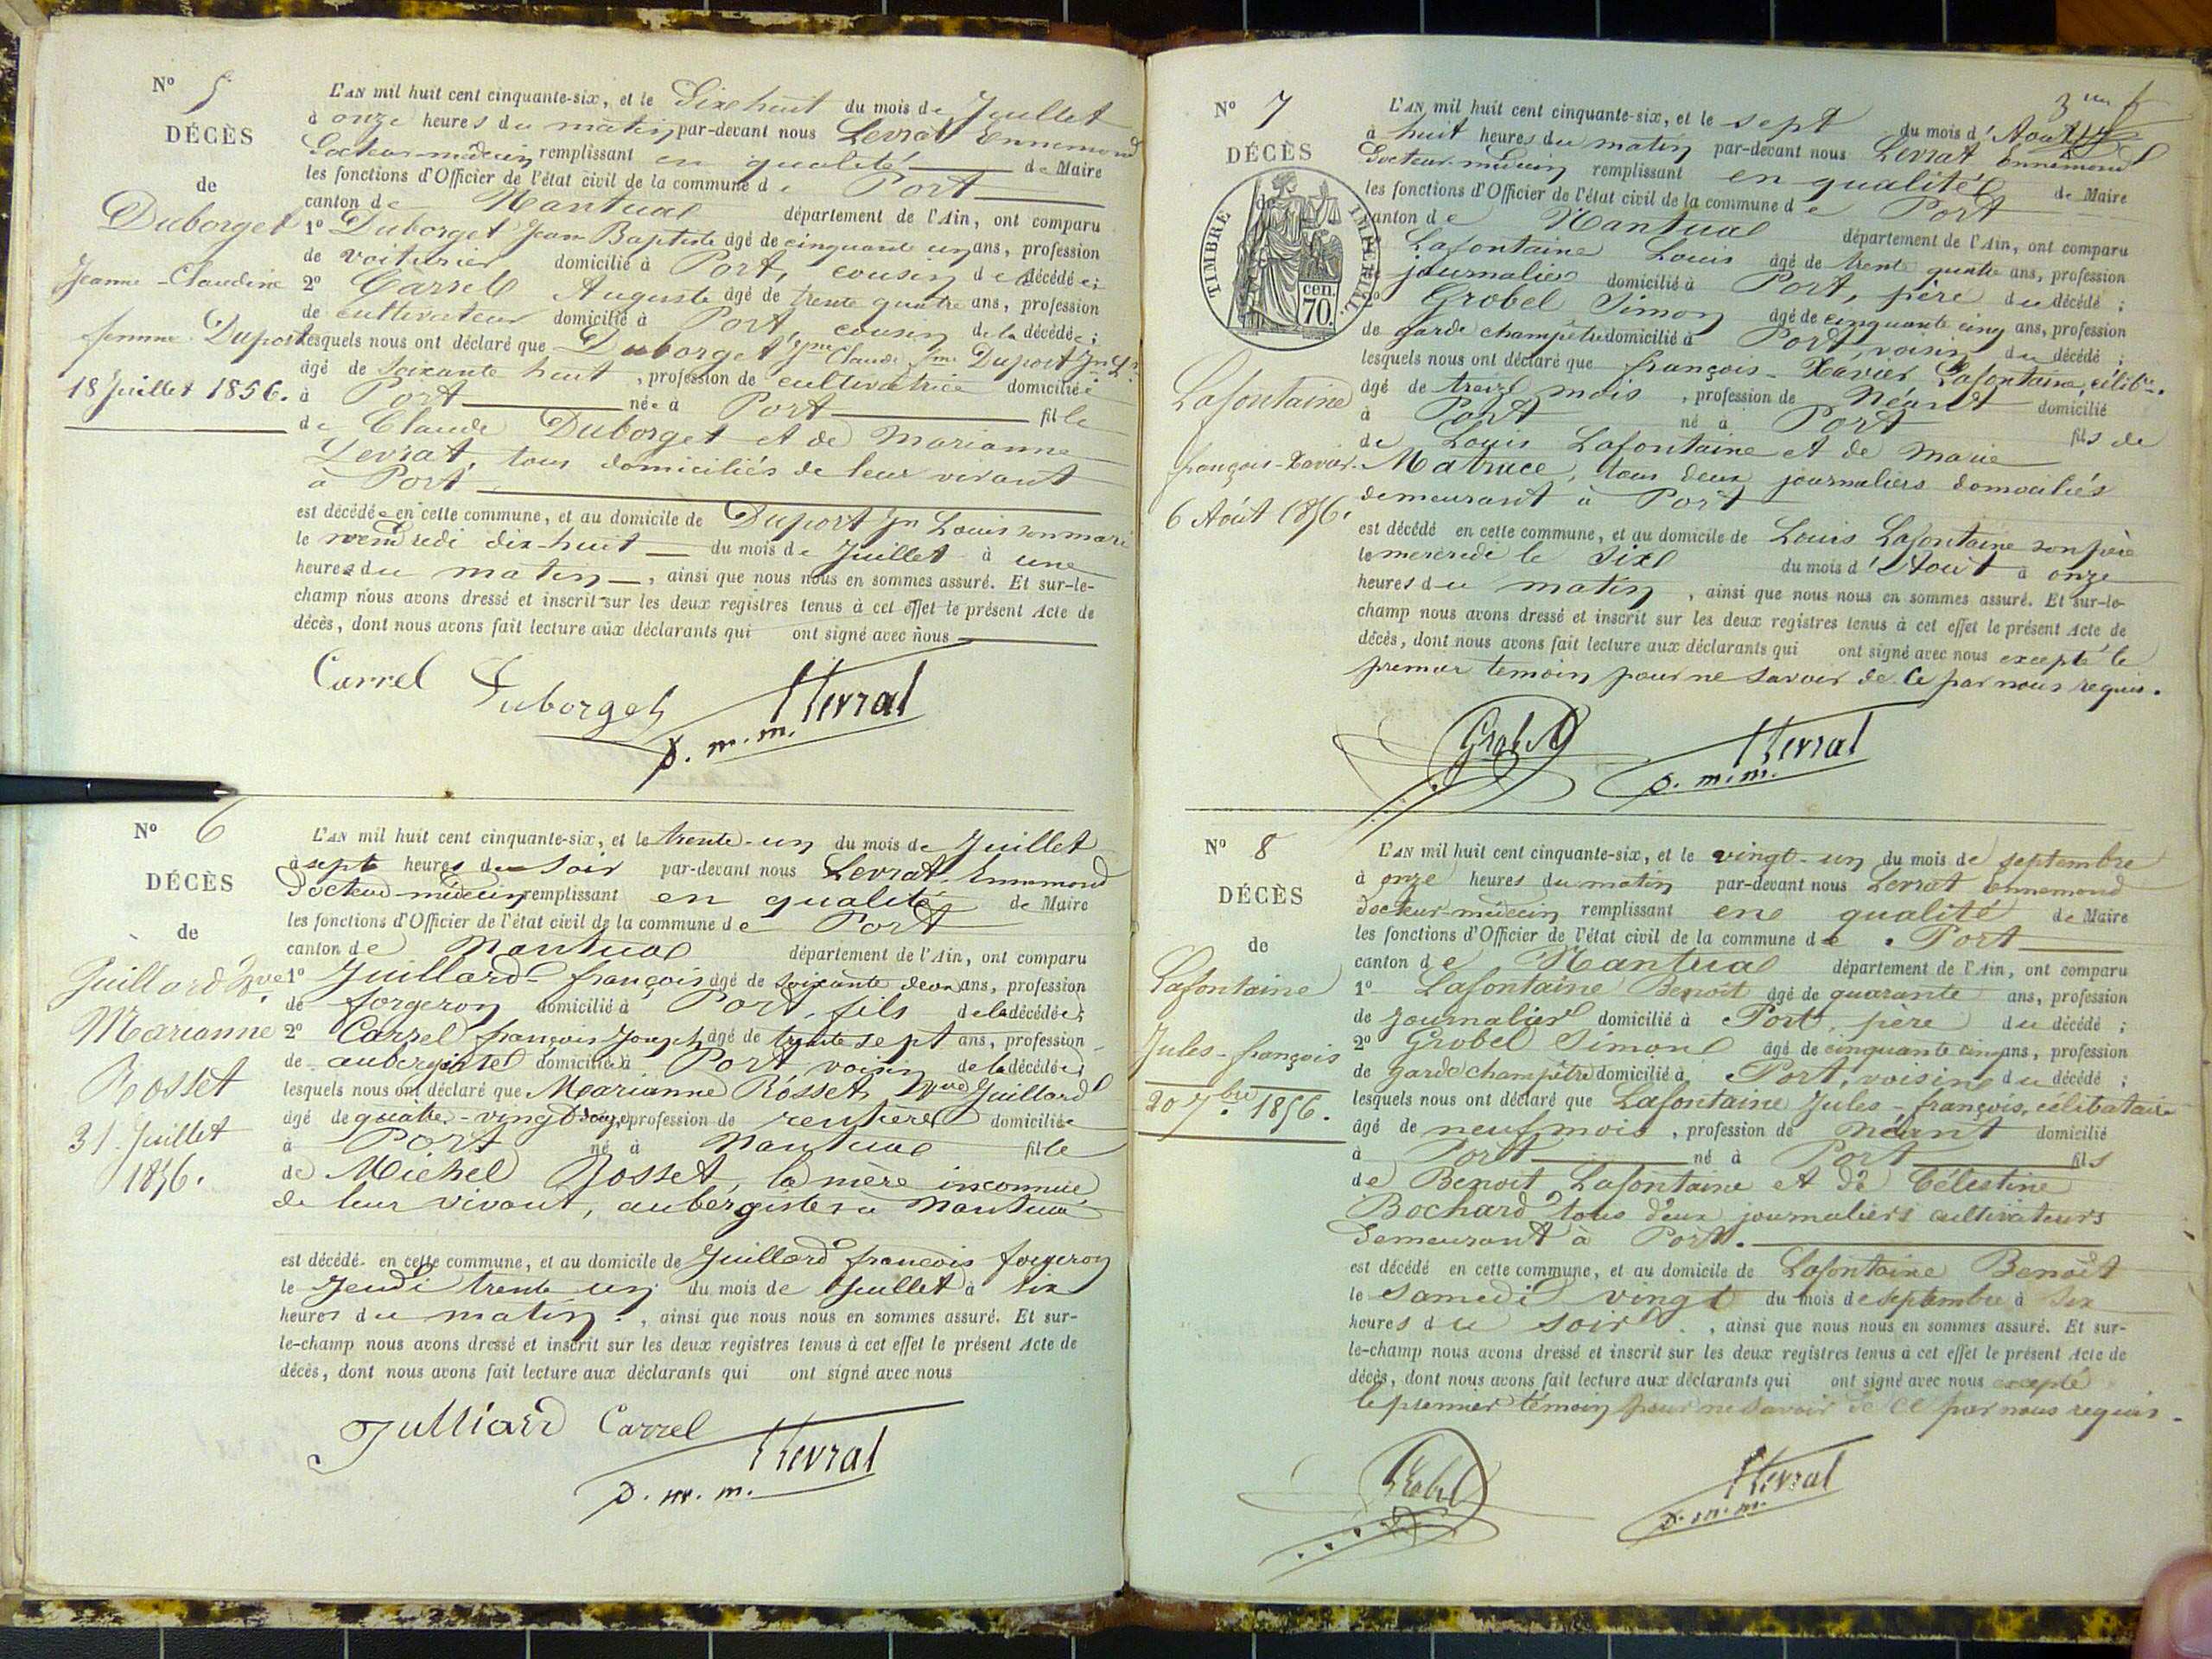 N° 5
DÉCÈS
de
Duborget
Jeanne-Claudine
femme Duport
18 Juillet 1856.
L'AN mil huit cent cinquante-six, et le Dixhuit du mois de Juillet
à onze heures du matin par-devant nous Levrat Ennemond
Docteur-médecin remplissant en qualité de Maire
les fonctions d'Officier de l'état civil de la commune de Port
canton de Nantua département de l'Ain, ont comparu
1° Duborget Jean Baptiste âgé de cinquante un ans, profession
de voiturier domicilié à Port, cousin de la décédée;
2° Carrel Auguste âgé de trente quatre ans, profession
de cultivateur domicilié à Port, cousin de la décédée;
lesquels nous ont déclaré que Duborget Jne Claude fme Duport Jn Ls
âgé de soixante huit, profession de cultivatrice domiciliée
à Port née à Port fille
de Claude Duborget et de Marianne
Levrat, tous domiciliés de leur vivant
à Port
est décédée en cette commune, et au domicile de Duport Jn Louis son mari
le vendredi dix-huit du mois de Juillet à une
heures du matin, ainsi que nous nous en sommes assuré. Et sur-le-
champ nous avons dressé et inscrit sur les deux registres tenus à cet effet le présent Acte de
décès, dont nous avons fait lecture aux déclarants qui ont signé avec nous
Carrel Duborget Levrat
d. m. m.
N° 6
DÉCÈS
de
Juillard Vve
Marianne
Rosset
31 Juillet
1856.
L'AN mil huit cent cinquante-six, et le trente-un du mois de Juillet
à sept heures du soir par-devant nous Levrat Ennemond
Docteur-médecin remplissant en qualité de Maire
les fonctions d'Officier de l'état civil de la commune de Port
canton de Nantua département de l'Ain, ont comparu
1° Juillard françois âgé de soixante deux ans, profession
de forgeron domicilié à Port, fils de la décédée;
2° Carrel françois Joseph âgé de trente sept ans, profession
de aubergiste domicilié à Port, voisin de la décédée;
lesquels nous ont déclaré que Marianne Rosset, Vve Juillard
âgé de quatre-vingt profession de rentière domiciliée
à Port né à Nantua fille
de Michel Rosset, la mère inconnue
de leur vivant, aubergistes à Nantua
est décédé en cette commune, et au domicile de Juillard françois forgeron
le Jeudi trente un du mois de Juillet à six
heures du matin, ainsi que nous nous en sommes assuré. Et sur-
le-champ nous avons dressé et inscrit sur les deux registres tenus à cet effet le présent Acte de
décès, dont nous avons fait lecture aux déclarants qui ont signé avec nous
Julliard Carrel Levrat
d. m. m.
N° 7
DÉCÈS
de
TIMBRE IMPÉRIAL
70 cen.
Lafontaine
françois-Xavier
6 Août 1856.
L'AN mil huit cent cinquante-six, et le sept du mois d'Août
à huit heures du matin par-devant nous Levrat Ennemond
Docteur-médecin remplissant en qualité de Maire
les fonctions d'Officier de l'état civil de la commune de Port
canton de Nantua département de l'Ain, ont comparu
Lafontaine Louis âgé de trente quatre ans, profession
de journalier domicilié à Port, père du décédé;
2° Grobel Simon âgé de cinquante cinq ans, profession
de garde champêtre domicilié à Port, voisin du décédé;
lesquels nous ont déclaré que françois-Xavier Lafontaine, célibre
âgé de treize mois, profession de Néant domicilié
à Port né à Port fils de
de Louis Lafontaine et de Marie
Matruce, tous deux journaliers domiciliés
demeurant à Port
est décédé en cette commune, et au domicile de Louis Lafontaine son père
le mercredi le six du mois d'Août à onze
heures du matin, ainsi que nous nous en sommes assuré. Et sur-le-
champ nous avons dressé et inscrit sur les deux registres tenus à cet effet le présent Acte de
décès, dont nous avons fait lecture aux déclarants qui ont signé avec nous excepté le
premier témoin pour ne savoir de ce par nous requis.
Grobel Levrat
d. m. m.
N° 8
DÉCÈS
de
Lafontaine
Jules-françois
20 7bre 1856.
L'AN mil huit cent cinquante-six, et le vingt-un du mois de septembre
à onze heures du matin par-devant nous Levrat Ennemond
docteur-médecin remplissant en qualité de Maire
les fonctions d'Officier de l'état civil de la commune de Port
canton de Nantua département de l'Ain, ont comparu
1° Lafontaine Benoît âgé de quarante ans, profession
de journalier domicilié à Port, père du décédé;
2° Grobel Simon âgé de cinquante cinq ans, profession
de garde champêtre domicilié à Port, voisin du décédé;
lesquels nous ont déclaré que Lafontaine Jules-françois, célibataire
âgé de neuf mois, profession de néant domicilié
à Port né à Port fils
de Benoit Lafontaine et de Célestine
Bochard tous deux journaliers cultivateurs
demeurant à Port.
est décédé en cette commune, et au domicile de Lafontaine Benoît
le samedi vingt du mois de septembre à six
heures du soir, ainsi que nous nous en sommes assuré. Et sur-
le-champ nous avons dressé et inscrit sur les deux registres tenus à cet effet le présent Acte de
décès, dont nous avons fait lecture aux déclarants qui ont signé avec nous excepté
le premier témoin pour ne savoir de ce par nous requis.
Grobel Levrat
d. m. m.